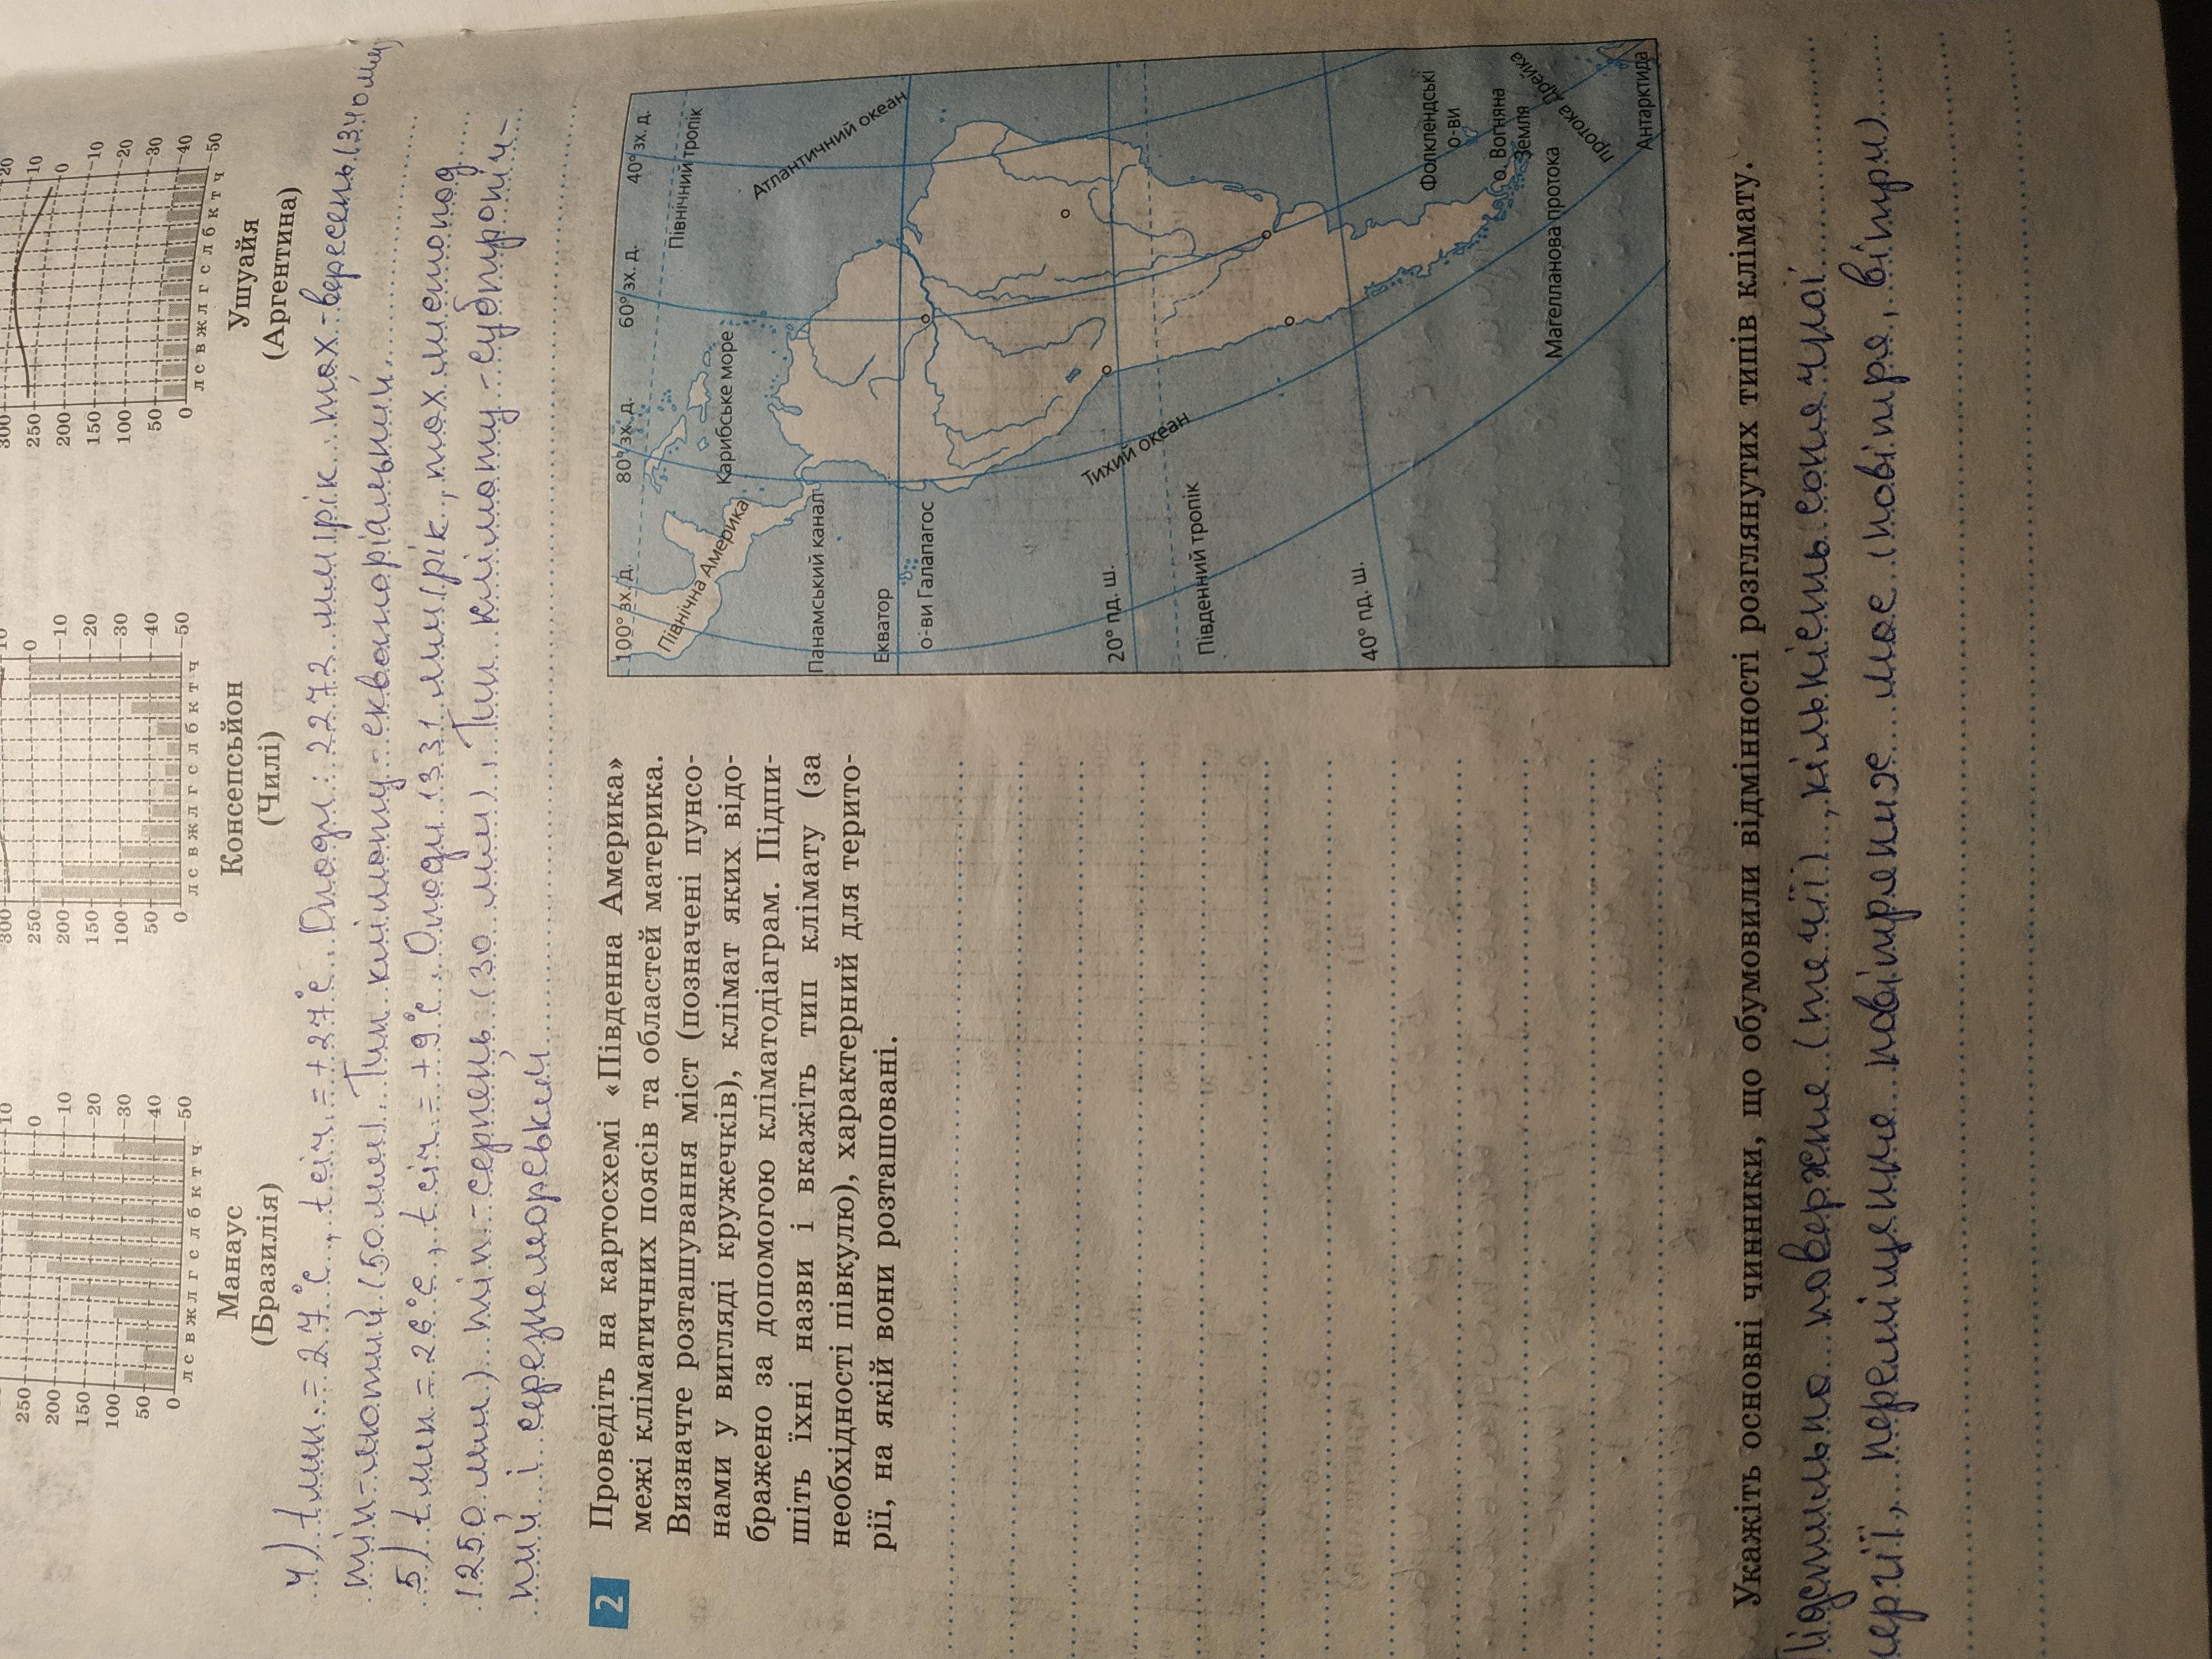 300
250
200
150
100
50
0
10
0
–10
–20
–30
–40
–50
л с в ж л г с л б к т ч
Манаус
(Бразилія)
300
250
200
150
100
50
0
10
0
–10
–20
–30
–40
–50
л с в ж л г с л б к т ч
Консепсьйон
(Чилі)
300
250
200
150
100
50
0
20
10
0
–10
–20
–30
–40
–50
л с в ж л г с л б к т ч
Ушуайя
(Аргентина)
4) t лип = 27°С, t січ = +27°С. Опади: 2272 мм/рік max - вересень (340 мм)
min - лютий (50 мм). Тип клімату - екваторіальний
5) t лип = 26°С, t січ = +9°С. Опади 1331 мм/рік, max листопад
(250 мм) min - серпень (30 мм). Тип клімату - субтропіч-
ний і середземорський
2 Проведіть на картосхемі «Південна Америка»
межі кліматичних поясів та областей материка.
Визначте розташування міст (позначені пунсо-
нами у вигляді кружечків), клімат яких відо-
бражено за допомогою кліматодіаграм. Підпи-
шіть їхні назви і вкажіть тип клімату (за
необхідності півкулю), характерний для терито-
рії, на якій вони розташовані.
100° зх. д.
80° зх. д.
60° зх. д.
40° зх. д.
Північна Америка
Карибське море
Північний тропік
Атлантичний океан
Панамський канал
Екватор
о-ви Галапагос
Тихий океан
20° пд. ш.
Південний тропік
40° пд. ш.
Фолклендські
о-ви
о. Вогняна
Земля
Магелланова протока
протока Дрейка
Антарктида
Укажіть основні чинники, що обумовили відмінності розглянутих типів клімату.
Підстильна поверхня (течії), кількість сонячної
енергії, переміщення повітряних мас (повітря, вітри)